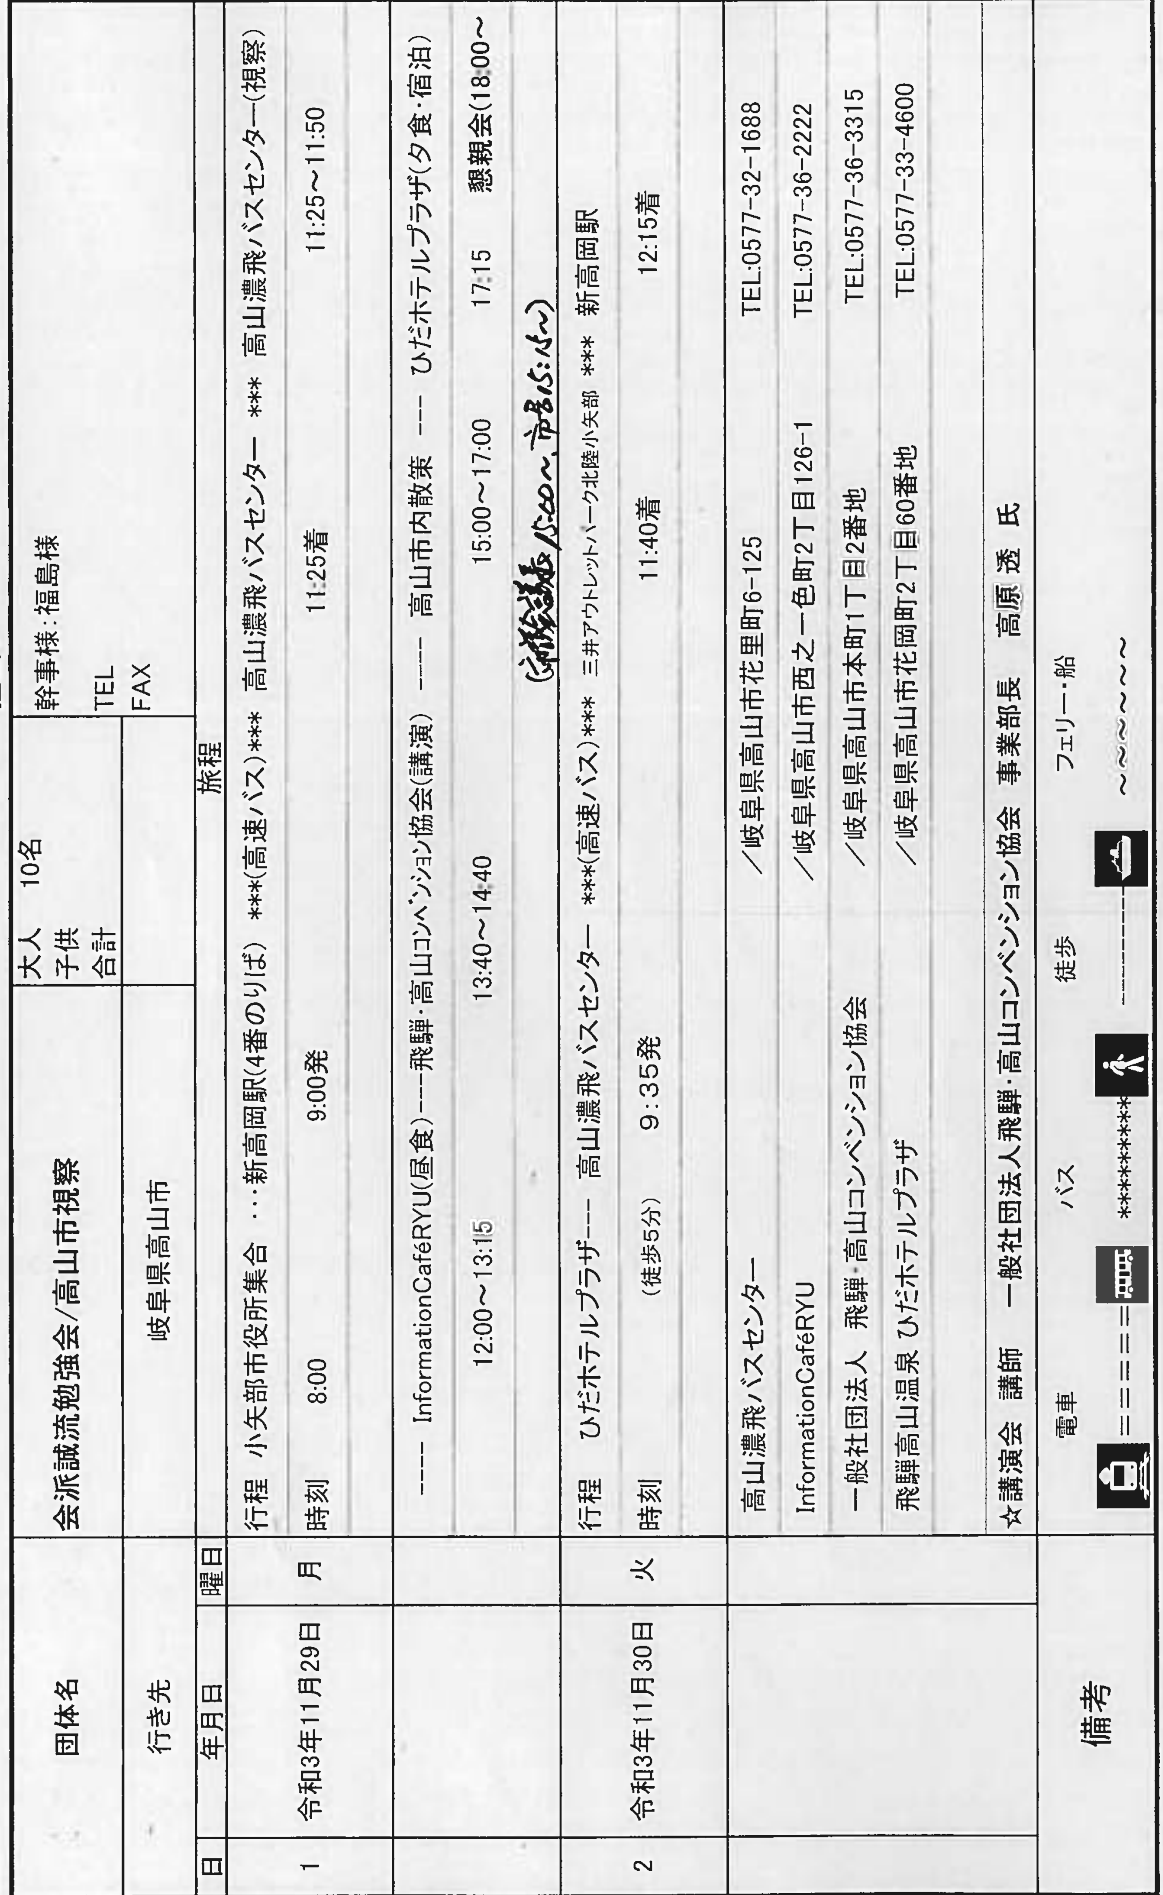 団体名 会派誠流勉強会/高山市視察 大人 10名 幹事様:福島様
子供
合計 TEL
行き先 岐阜県高山市 FAX
日 年月日 曜日 旅程
1 令和3年11月29日 月 行程 小矢部市役所集合 ･･･新高岡駅(4番のりば) ***(高速バス)*** 高山濃飛バスセンター *** 高山濃飛バスセンター(視察)
時刻 8:00 9:00発 11:25着 11:25～11:50
---- InformationCaféRYU(昼食)---飛騨･高山コンベンション協会(講演) --- 高山市内散策 --- ひだホテルプラザ(夕食･宿泊)
12:00～13:15 13:40～14:40 15:00～17:00 17:15 懇親会(18:00～
15:00～、市長15:15～)
2 令和3年11月30日 火 行程 ひだホテルプラザ--- 高山濃飛バスセンター ***(高速バス)*** 三井アウトレットパーク北陸小矢部 *** 新高岡駅
時刻 (徒歩5分) 9:35発 11:40着 12:15着
高山濃飛バスセンター ／岐阜県高山市花里町6-125 TEL:0577-32-1688
InformationCaféRYU ／岐阜県高山市西之一色町2丁目126-1 TEL:0577-36-2222
一般社団法人 飛騨･高山コンベンション協会 ／岐阜県高山市本町1丁目2番地 TEL:0577-36-3315
飛騨高山温泉 ひだホテルプラザ ／岐阜県高山市花岡町2丁目60番地 TEL:0577-33-4600
☆講演会 講師 一般社団法人飛騨･高山コンベンション協会 事業部長 高原 透 氏
備考 電車 バス 徒歩 フェリー･船
====== ********* ----------- ～～～～～～